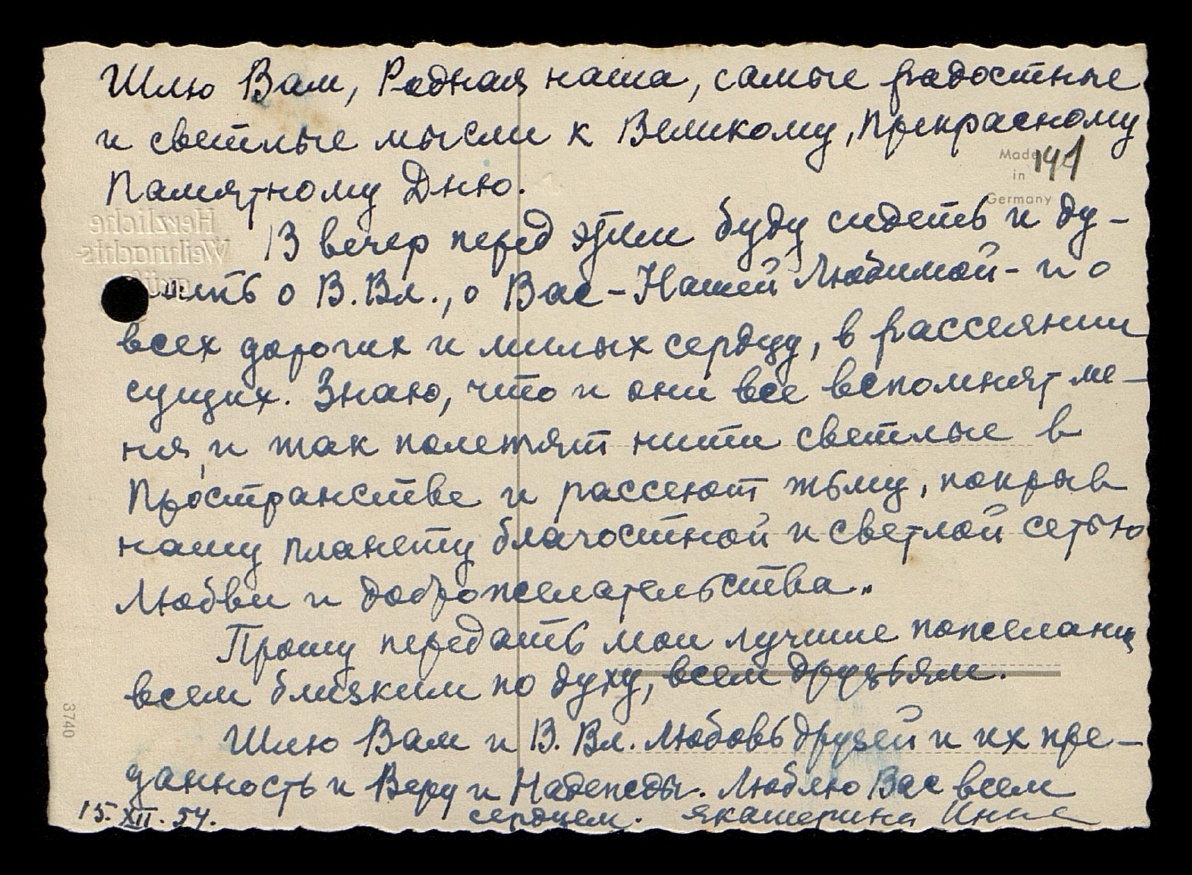 Шлю Вам, Родная наша, самые радостные
и светлые мысли к Великому, Прекрасному
Памятному Дню.
Made
in
Germany
141
Herzliche
Weihnachts-
В вечер перед этим буду сидеть и ду-
мать о В.Вл., о Вас - Нашей Любимой - и о
всех дорогих и милых сердцу, в рассеянии
сущих. Знаю, что и они все вспомнят ме-
ня, и так полетят нити светлые в
Пространстве и рассеют тьму, покрыв
нашу планету благостной и светлой сетью
Любви и доброжелательства.
Прошу передать мои лучшие пожелания
всем близким по духу, всем друзьям.
3740
Шлю Вам и В. Вл. любовь друзей и их пре-
данность и Веру и Надежды. Люблю Вас всем
сердцем. Екатерина Инге
15.XII.54.